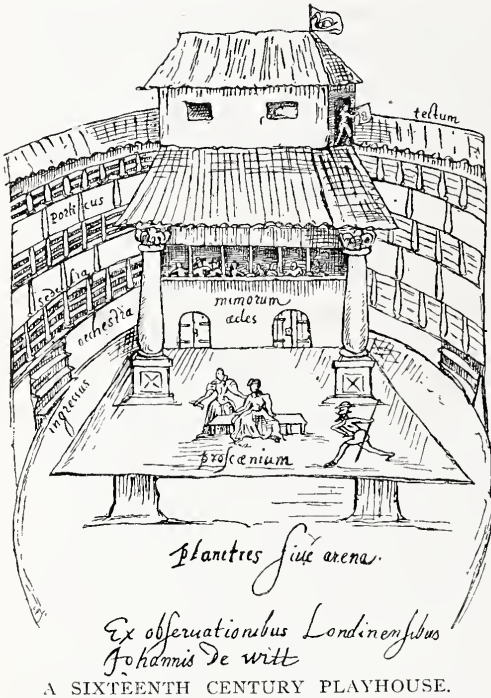 tectum
porticus
sedilia
orchestra
mimorum
ædes
ingressus
proscænium
planities siue arena.
Ex obseruationibus Londinensibus
Johannis De witt
A SIXTEENTH CENTURY PLAYHOUSE.